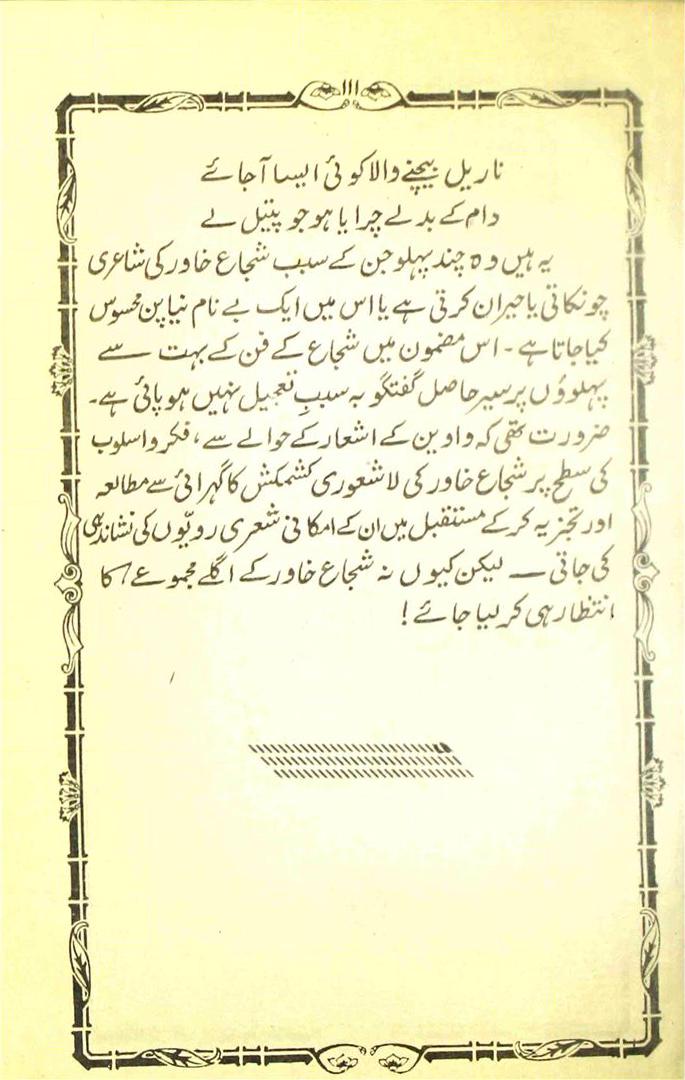 ااا
ناریل بیچنے والا کوئی ایسا آ جائے
دام کے بدلے چرایا ہو جو پیتل لے
یہ ہیں وہ چند پہلو جن کے سبب شجاع خاور کی شاعری
چونکاتی یا حیران کرتی ہے یا اس میں ایک بے نام نیا پن محسوس
کیا جاتا ہے ۔ اس مضمون میں شجاع کے فن کے بہت سے
پہلوؤں پر سیر حاصل گفتگو بہ سببِ تعجیل نہیں ہو پائی ہے۔
ضرورت تھی کہ واوین کے اشعار کے حوالے سے ، فکر و اسلوب
کی سطح پر شجاع خاور کی لا شعوری کشمکش کا گہرائی سے مطالعہ
اور تجزیہ کرکے مستقبل میں ان کے امکانی شعری رویّوں کی نشاندہی
کی جاتی — لیکن کیوں نہ شجاع خاور کے اگلے مجموعے کا
انتظار ہی کر لیا جائے !